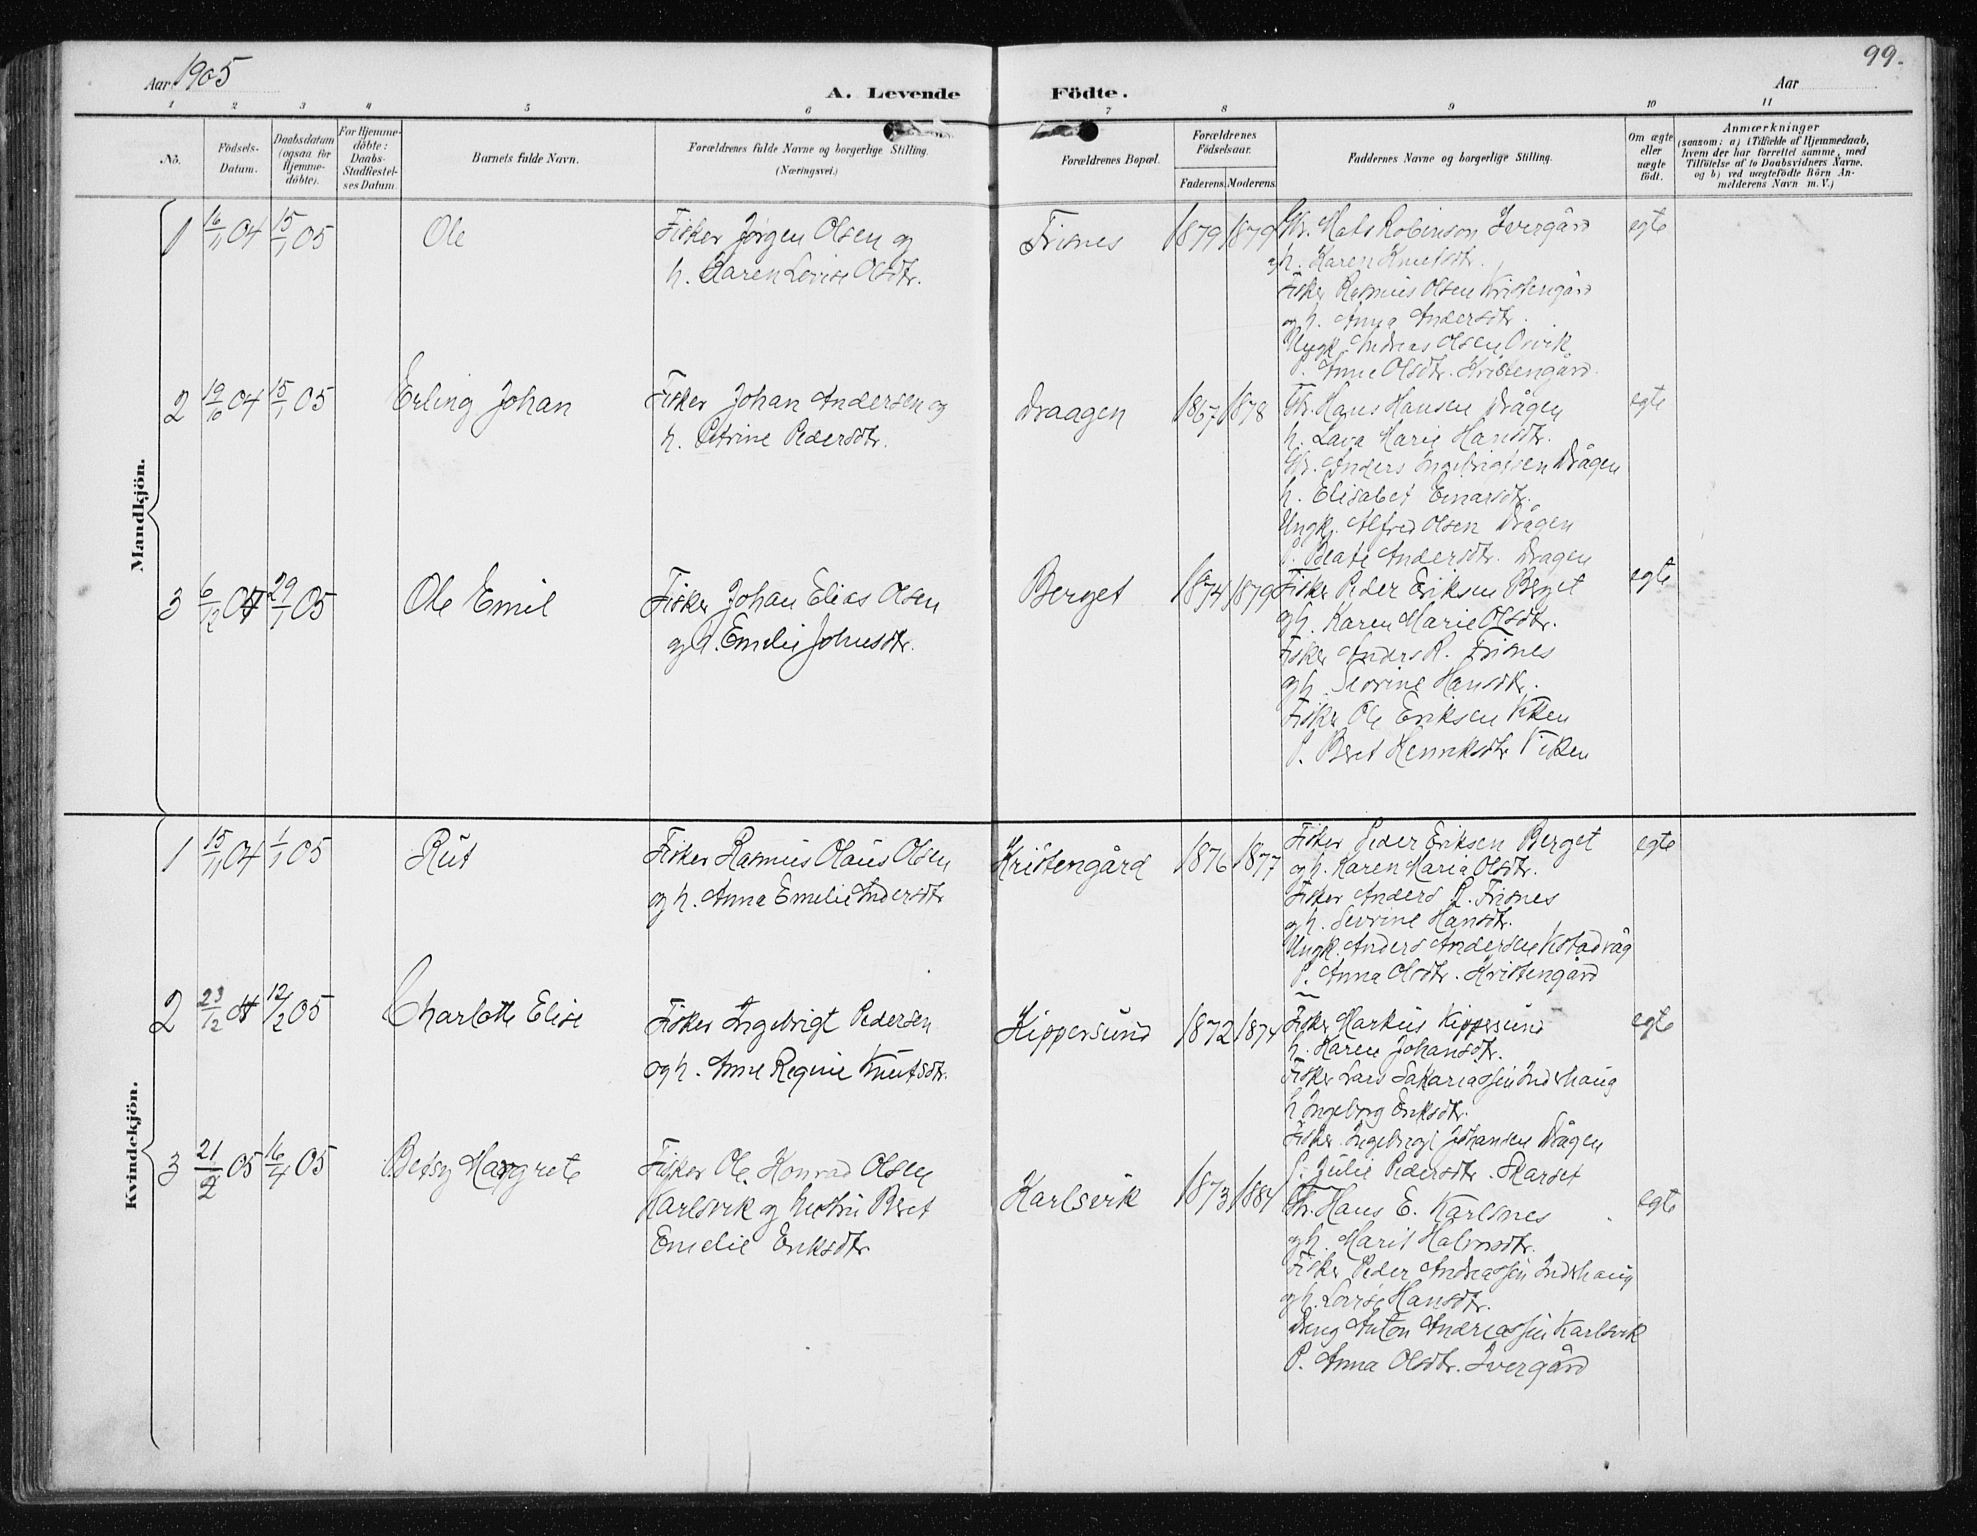 Aar 1905
A. Levende Födte.
Aar
99.
1 2 3 4 5 6 7 8 9 10 11
No.
Födsels-Datum.
Daabsdatum (ogsaa for Hjemme-döbte).
For Hjemme-döbte: Daabs-Stadfæstel-ses Datum.
Barnets fulde Navn.
Forældrenes fulde Navne og borgerlige Stilling. (Næringsvei.)
Forældrenes Bopæl.
Forældrenes Födselsaar.
Faderens. Moderens.
Faddernes Navne og borgerlige Stilling.
Om ægte eller uægte födt.
Anmærkninger
(saasom: a) i Tilfælde af Hjemmedaab, hvem der har forrettet samme, med Tilföielse af to Daabsvidners Navne. og b) ved uægtefödte Börn Anmelderens Navn m. V.)
Mandkjön.
1 16/11 04 15/1 05 Ole
Fisker Jørgen Olsen og
h. Karen Lovise Olsdtr.
Frisnes 1879 1879
Gbr. Mats Robinson Ivergård
og h. Karen Knutsdtr.
Fisker Rasmus Olsen Kristengård
og h. Anna Andersdtr.
Ungk. Andreas Olsen Orvik
P. Anne Olsdtr. Kristengård.
egte
2 19/10 04 15/1 05 Erling Johan
Fisker Johan Andersen og
h. Petrine Pedersdtr.
Draagen 1867 1878
Gbr. Hans Hansen Drågen
h. Lava Marie Hansdtr.
Gbr. Anders Ingebrigtsen Drågen
h. Elisabet Einarsdtr.
Ungk. Alfred Olsen Drågen
P. Beate Andersdtr. Dragen
egte
3 6/12 04 29/1 05 Ole Emil
Fisker Johan Elias Olsen
og h. Emelie Johnsdtr.
Berget 1874 1879
Fisker Peder Eriksen Berget
og h. Karen Marie Olsdtr.
Fisker Anders R. Frisnes
og h. Sevrine Hansdtr.
Fisker Ole Eriksen Viken
P. Beret Henriksdtr Viken
egte
Kvindekjön.
1 15/11 04 1/1 05 Rut
Fisker Rasmus Olaus Olsen
og h. Anna Emelie Andersdtr
Kristengård 1876 1877
Fisker Peder Eriksen Berget
og h. Karen Maria Olsdtr.
Fisker Anders R. Frisnes
og h. Sevrine Hansdtr.
Ungk. Anders Andersen Kstadvåg
P. Anna Olsdtr. Kristengård
egte
2 23/12 04 12/2 05 Charlotte Elise
Fisker Ingebrigt Pedersen
og h. Anne Regine Knutsdtr.
Kippersund 1872 1874
Fisker Markus Kippersund
h. Karen Johansdtr.
Fisker Lars Sakariassen Inderhaug
h Ingeborg Eriksdtr.
Fisker Ingebrigt Johansen Drågen
P. Julie Pedersdtr. Skarset
egte
3 21/2 05 16/4 05 Betsy Margrete
Fisker Ole Konrad Olsen
Karlsvik og hustru Beret
Emelie Eriksdtr
Karlsvik 1873 1884
Gbr. Hans E. Karlsnes
og h. Marit Halvorsdtr.
Fisker Peder Andreassen Inderhaug
og h. Lovise Hansdtr.
Dreng Anton Andreassen Karlsvik
P. Anna Olsdtr. Ivergård
egte